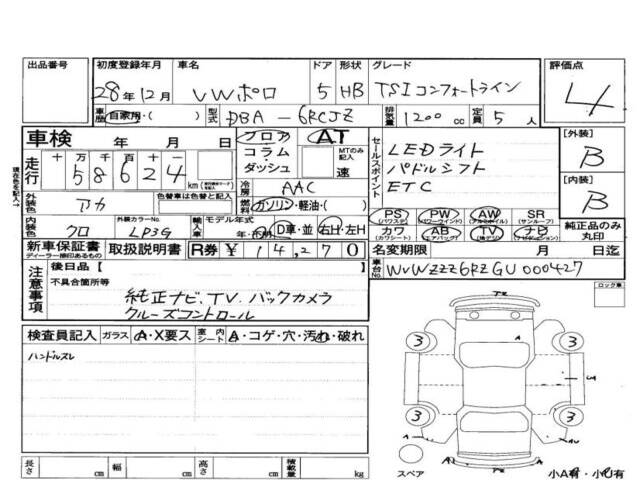 出品番号
初度登録年月 車名 ドア 形状 グレード 評価点
28年12月 VWポロ 5 HB TSIコンフォートライン 4
車歴 自家用・( ) 型式 DBA-6RCJZ 排気量 1200cc 定員 5人
車検 年 月 日 フロア AT
コラム・ダッシュ MTのみ記入 速
走行 十万 万 千 百 十 58624 km
現在私を記入→
セールスポイント
LEDライト
パドルシフト
ETC
[外装] B
[内装] B
冷房 AAC
外装色 アカ 色替車は色替と元色
燃料 ガソリン・軽油・( )
内装色 クロ 外装カラーNo. LP3G
輸入車 モデル年式 年・D車・並 右H・左H
PS (パワステ) PW (パワーウインド) AW (アルミホイル) SR (サンルーフ)
カワ (カワシート) AB (エアバッグ) TV ナビ (ナビゲーション)
純正品のみ丸印
新車保証書 ディーラー捺印あるもの 取扱説明書 R券 ¥14,270
名変期限 月 日迄
車台No. WVWZZZ6RZGU000427
注意事項
後日品 [ ]
不具合箇所等
純正ナビ、TV、バックカメラ
クルーズコントロール
ロック車
検査員記入 ガラス A・X要ス 室内シート A・コゲ・穴・汚れ・破れ
ハンドルスレ
3 3
3 3
スペア
小A有・小U有
長さ cm 幅 cm 高さ cm 積載量 kg